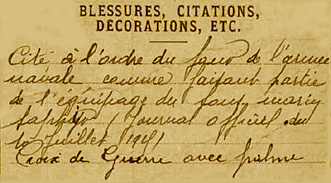 BLESSURES, CITATIONS,
DÉCORATIONS, ETC.
Cité à l'ordre du jour de l'armée
navale comme faisant partie
de l'équipage du sous marin
Papin (Journal Officiel du
Juillet
Croix de Guerre avec palme